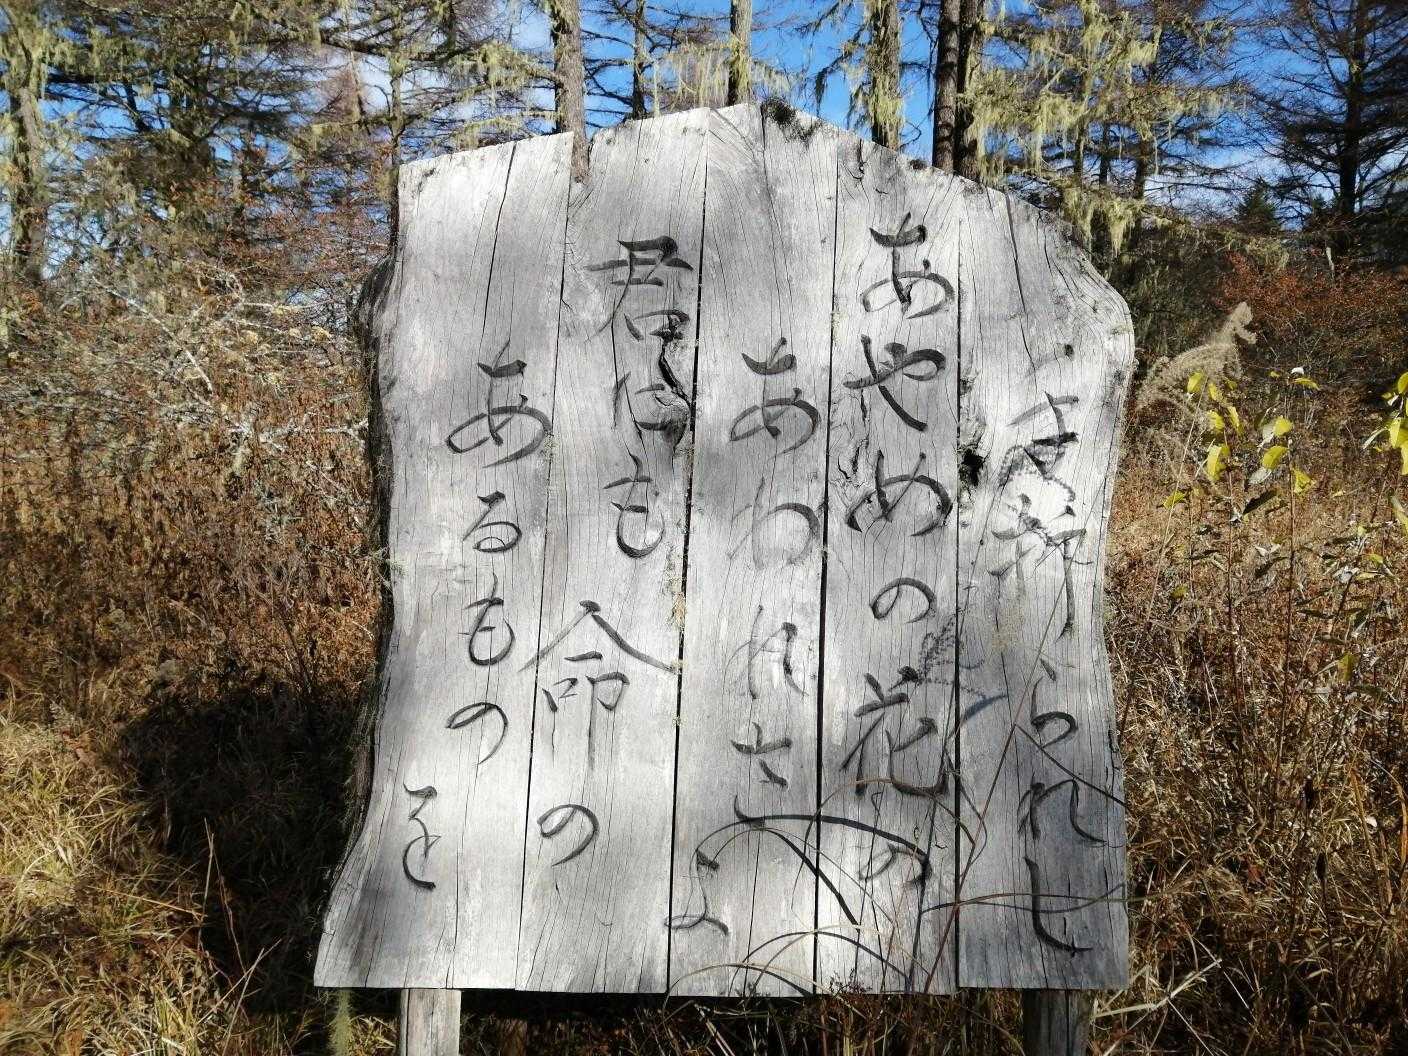 ま斬られし
あやめの花の
あわれさよ
君にも命の
あるものを